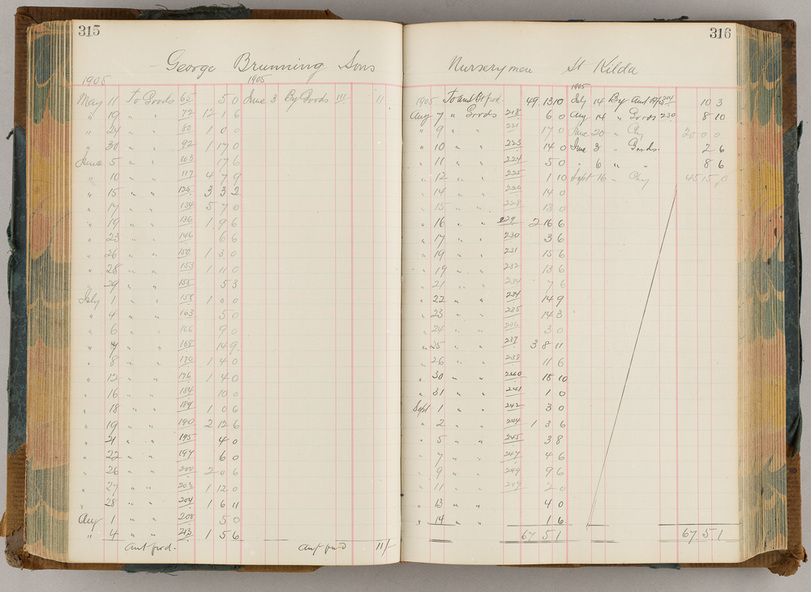 315
George Brunning Sons
1905 1905
May 11 To Goods 65 5 0 June 3 By Goods 111 11
" 19 " " 72 12 1 6
" 24 " " 80 1 0 0
" 30 " " 92 1 17 0
June 5 " " 103 17 6
" 10 " " 117 4 7 9
" 15 " " 126 3 3 2
" 17 " " 134 5 7 0
" 19 " " 136 1 9 6
" 23 " " 146 6 6
" 26 " " 150 1 3 0
" 28 " " 153 1 11 0
" 29 " " 155 5 3
July 1 " " 158 1 0 0
" 4 " " 163 5 0
" 6 " " 166 9 0
" 7 " " 168 14 9
" 8 " " 170 1 4 0
" 12 " " 176 1 4 0
" 16 " " 184 10 0
" 18 " " 187 1 0 6
" 19 " " 190 2 12 6
" 21 " " 195 4 0
" 22 " " 197 6 0
" 26 " " 200 2 0 6
" 27 " " 203 1 12 0
" 28 " " 204 1 6 11
Aug 1 " " 208 5 0
" 4 " " 213 1 5 6
Amt fwd. Amt fwd 11/-
316
Nurserymen St Kilda
1905
1905 To amt bt fwd. 49 13 10 July 14 By Amt 10 3
Aug 7 " Goods 218 6 0 Aug 14 " Goods 230 8 10
" 9 " " 221 17 0 June 20 " Chq 20 0 0
" 10 " " 223 14 0 June 3 " Goods 2 6
" 11 " " 224 5 0 " 6 " " 8 6
" 12 " " 225 1 10 Sept 16 " Chq 45 15 0
" 14 " " 226 14 0
" 15 " " 228 13 0
" 16 " " 229 2 16 6
" 17 " " 230 3 6
" 19 " " 231 15 6
" 19 " " 232 13 6
" 21 " " 234 7 6
" 22 " " 234 14 9
" 23 " " 235 14 3
" 24 " " 236 3 0
" 25 " " 237 3 8 11
" 26 " " 238 11 6
" 30 " " 240 15 10
" 31 " " 241 1 0
Sept 1 " " 242 3 0
" 2 " " 244 1 3 6
" 5 " " 245 3 8
" 7 " " 247 4 6
" 9 " " 249 9 6
" 11 " " 2 0
" 13 " " 4 0
" 14 " " 1 6
67 5 1 67 5 1